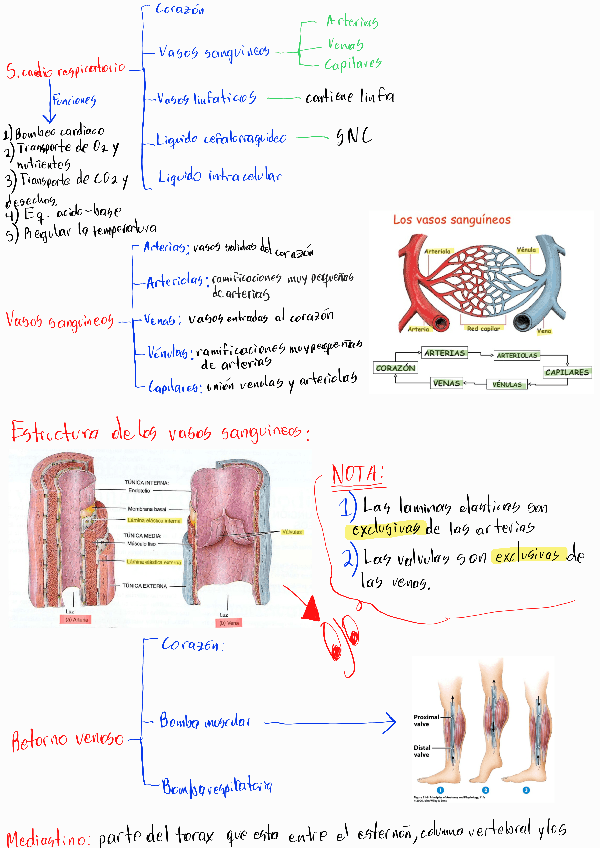 Corazón
S. cardio respiratorio
Vasos sanguineos
Arterias
Venas
Capilares
Vasos linfaticos
contiene linfa
Liquido cefalorraquideo
SNC
Liquido intracelular
Funciones
1) Bombeo cardiaco
2) Transporte de O2 y
nutrientes
3) Transporte de CO2 y
desechos
4) Eq. acido-base
5) Regular la temperatura
Vasos sanguineos
Arterias: vasos salidas del corazón
Arteriolas: ramificaciones muy pequeñas
de arterias
Venas: vasos entradas al corazón
Vénulas: ramificaciones muy pequeñas
de arterias
Capilares: unión venulas y arteriolas
Los vasos sanguíneos
Arteriola
Vénula
Arteria
Red capilar
Vena
ARTERIAS
ARTERIOLAS
CORAZÓN
CAPILARES
VENAS
VÉNULAS
Estructura de los vasos sanguineos:
TÚNICA INTERNA:
Endotelio
Membrana basal
Lámina elástica interna
Válvula
TÚNICA MEDIA:
Músculo liso
Lámina elástica externa
TÚNICA EXTERNA
Luz
Luz
(a) Arteria
(b) Vena
NOTA:
1) Las laminas elasticas son
exclusivas de las arterias
2) Las valvulas son exclusivas de
las venas.
ojo
Retorno venoso
Corazón:
Bomba muscular
Bomba respiratoria
Proximal
valve
Distal
valve
1
2
3
Mediastino: parte del torax que esta entre el esternón, columna vertebral y los